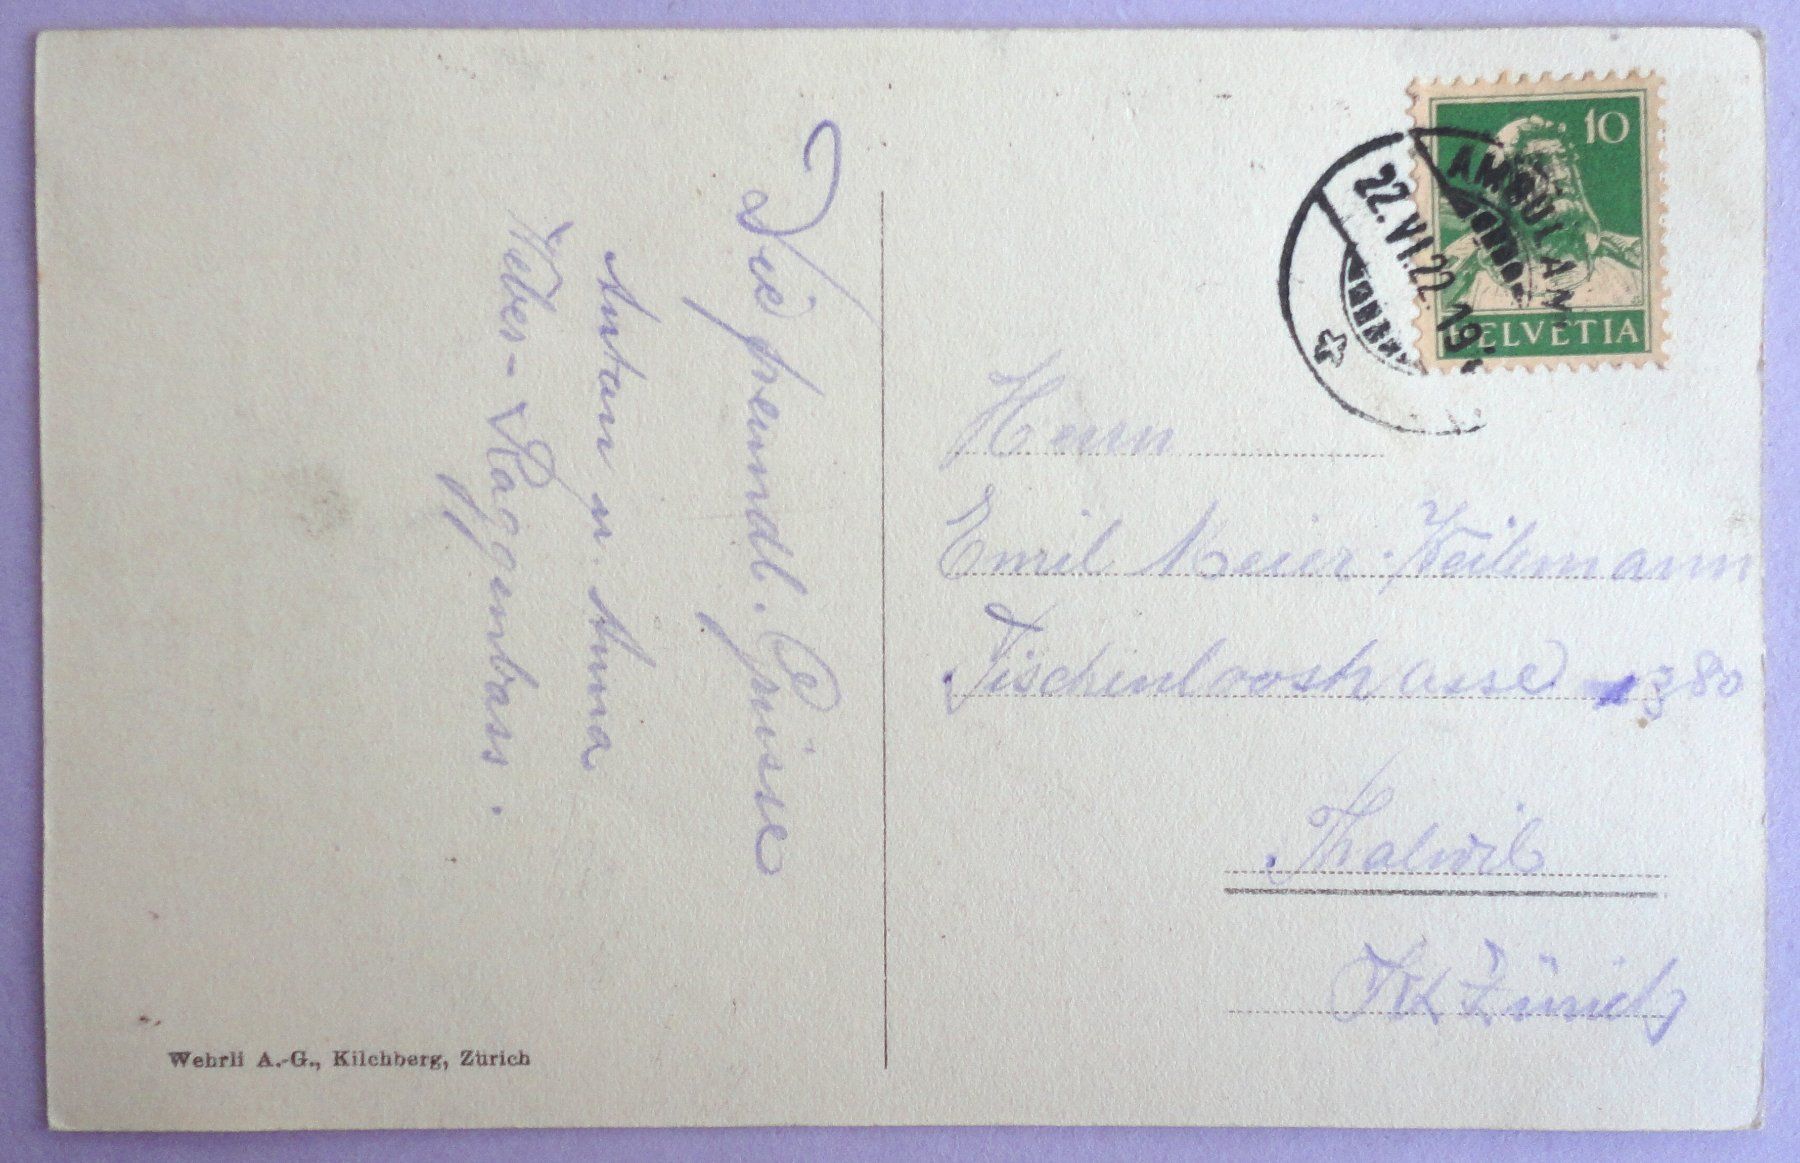 Die freundl. Grüsse
Anton u. Anna
Weber-Raggenbass.
10
HELVETIA
AMBULANT
22.VI.22.19
Herrn
Emil Meier-Weilemann
Tischenloostrasse 380
Thalwil
Kt Zürich
Wehrli A.-G., Kilchberg, Zürich